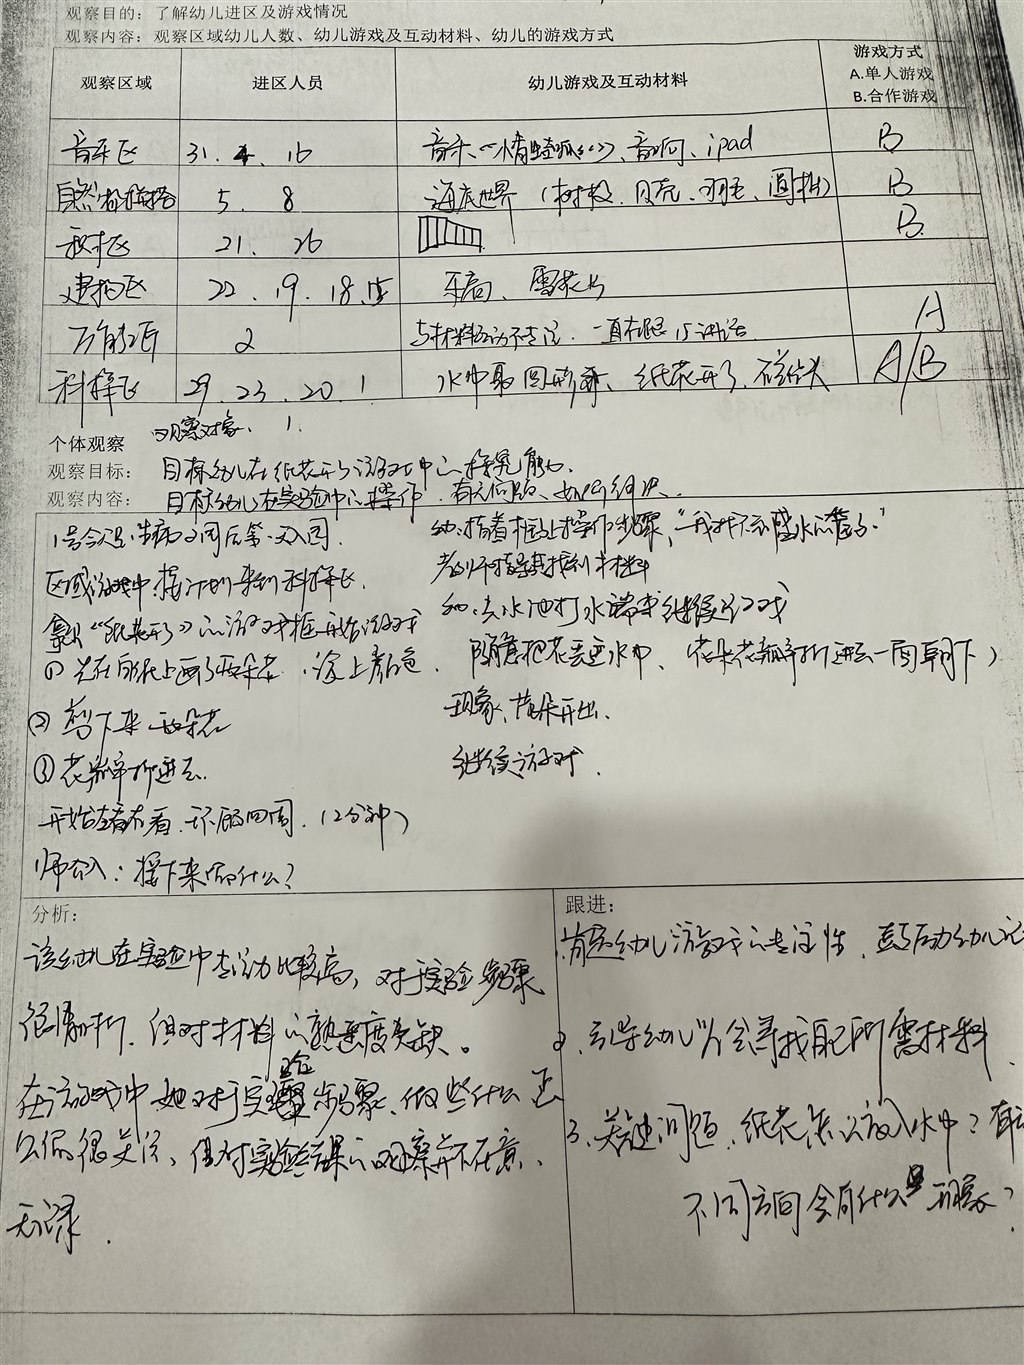 观察目的：了解幼儿进区及游戏情况
观察内容：观察区域幼儿人数、幼儿游戏及互动材料、幼儿的游戏方式
观察区域 进区人员 幼儿游戏及互动材料 游戏方式
A.单人游戏
B.合作游戏
音乐区 31. 4. 16 音乐、音响、ipad B
自然物拼搭 5. 8 海底世界（树枝、贝壳、羽毛、圆柱） B
积木区 21. 26 B
建构区 22. 19. 18. 15 乐高、雪花片
2 与材料互动不专注、一直在跟15讲话 A
科探区 29. 23. 20. 1 水中取回形针、纸花开了、 A/B
个体观察 观察对象：1.
观察目标： 目标幼儿在纸花开了游戏中的探究能力.
观察内容： 目标幼儿在实验中的操作、有无问题、如何解决.
1号今天是生病2周后第一次入园.
区域游戏中，按计划来到科探区.
拿出“纸花开了”的游戏材料框开始游戏
① 先在纸上画了两朵花、涂上颜色
② 剪下来两朵花
③ 花瓣折进去.
开始左看右看、环顾四周.（2分钟）
师介入：接下来做什么？
幼：指着框上操作步骤，“我找不到盛水的篮子.”
老师指导其找到材料
幼：去水池打水端来继续游戏
随意把花丢进水中、（花朵花瓣折进去一面朝下）
现象：花朵开出.
继续游戏.
分析：
该幼儿在实验中专注力比较高，对于实验步骤
很清晰，但对材料的熟悉度欠缺。
在游戏中她对于实验步骤、做些什么、怎
么做很关注、但对实验结果的观察并不在意、
无记录.
跟进：
1.肯定幼儿游戏的专注性、鼓励幼儿记
2.引导幼儿学会寻找自己所需材料.
3.关键问题、纸花怎么放入水中？
不同方向会有什么现象？